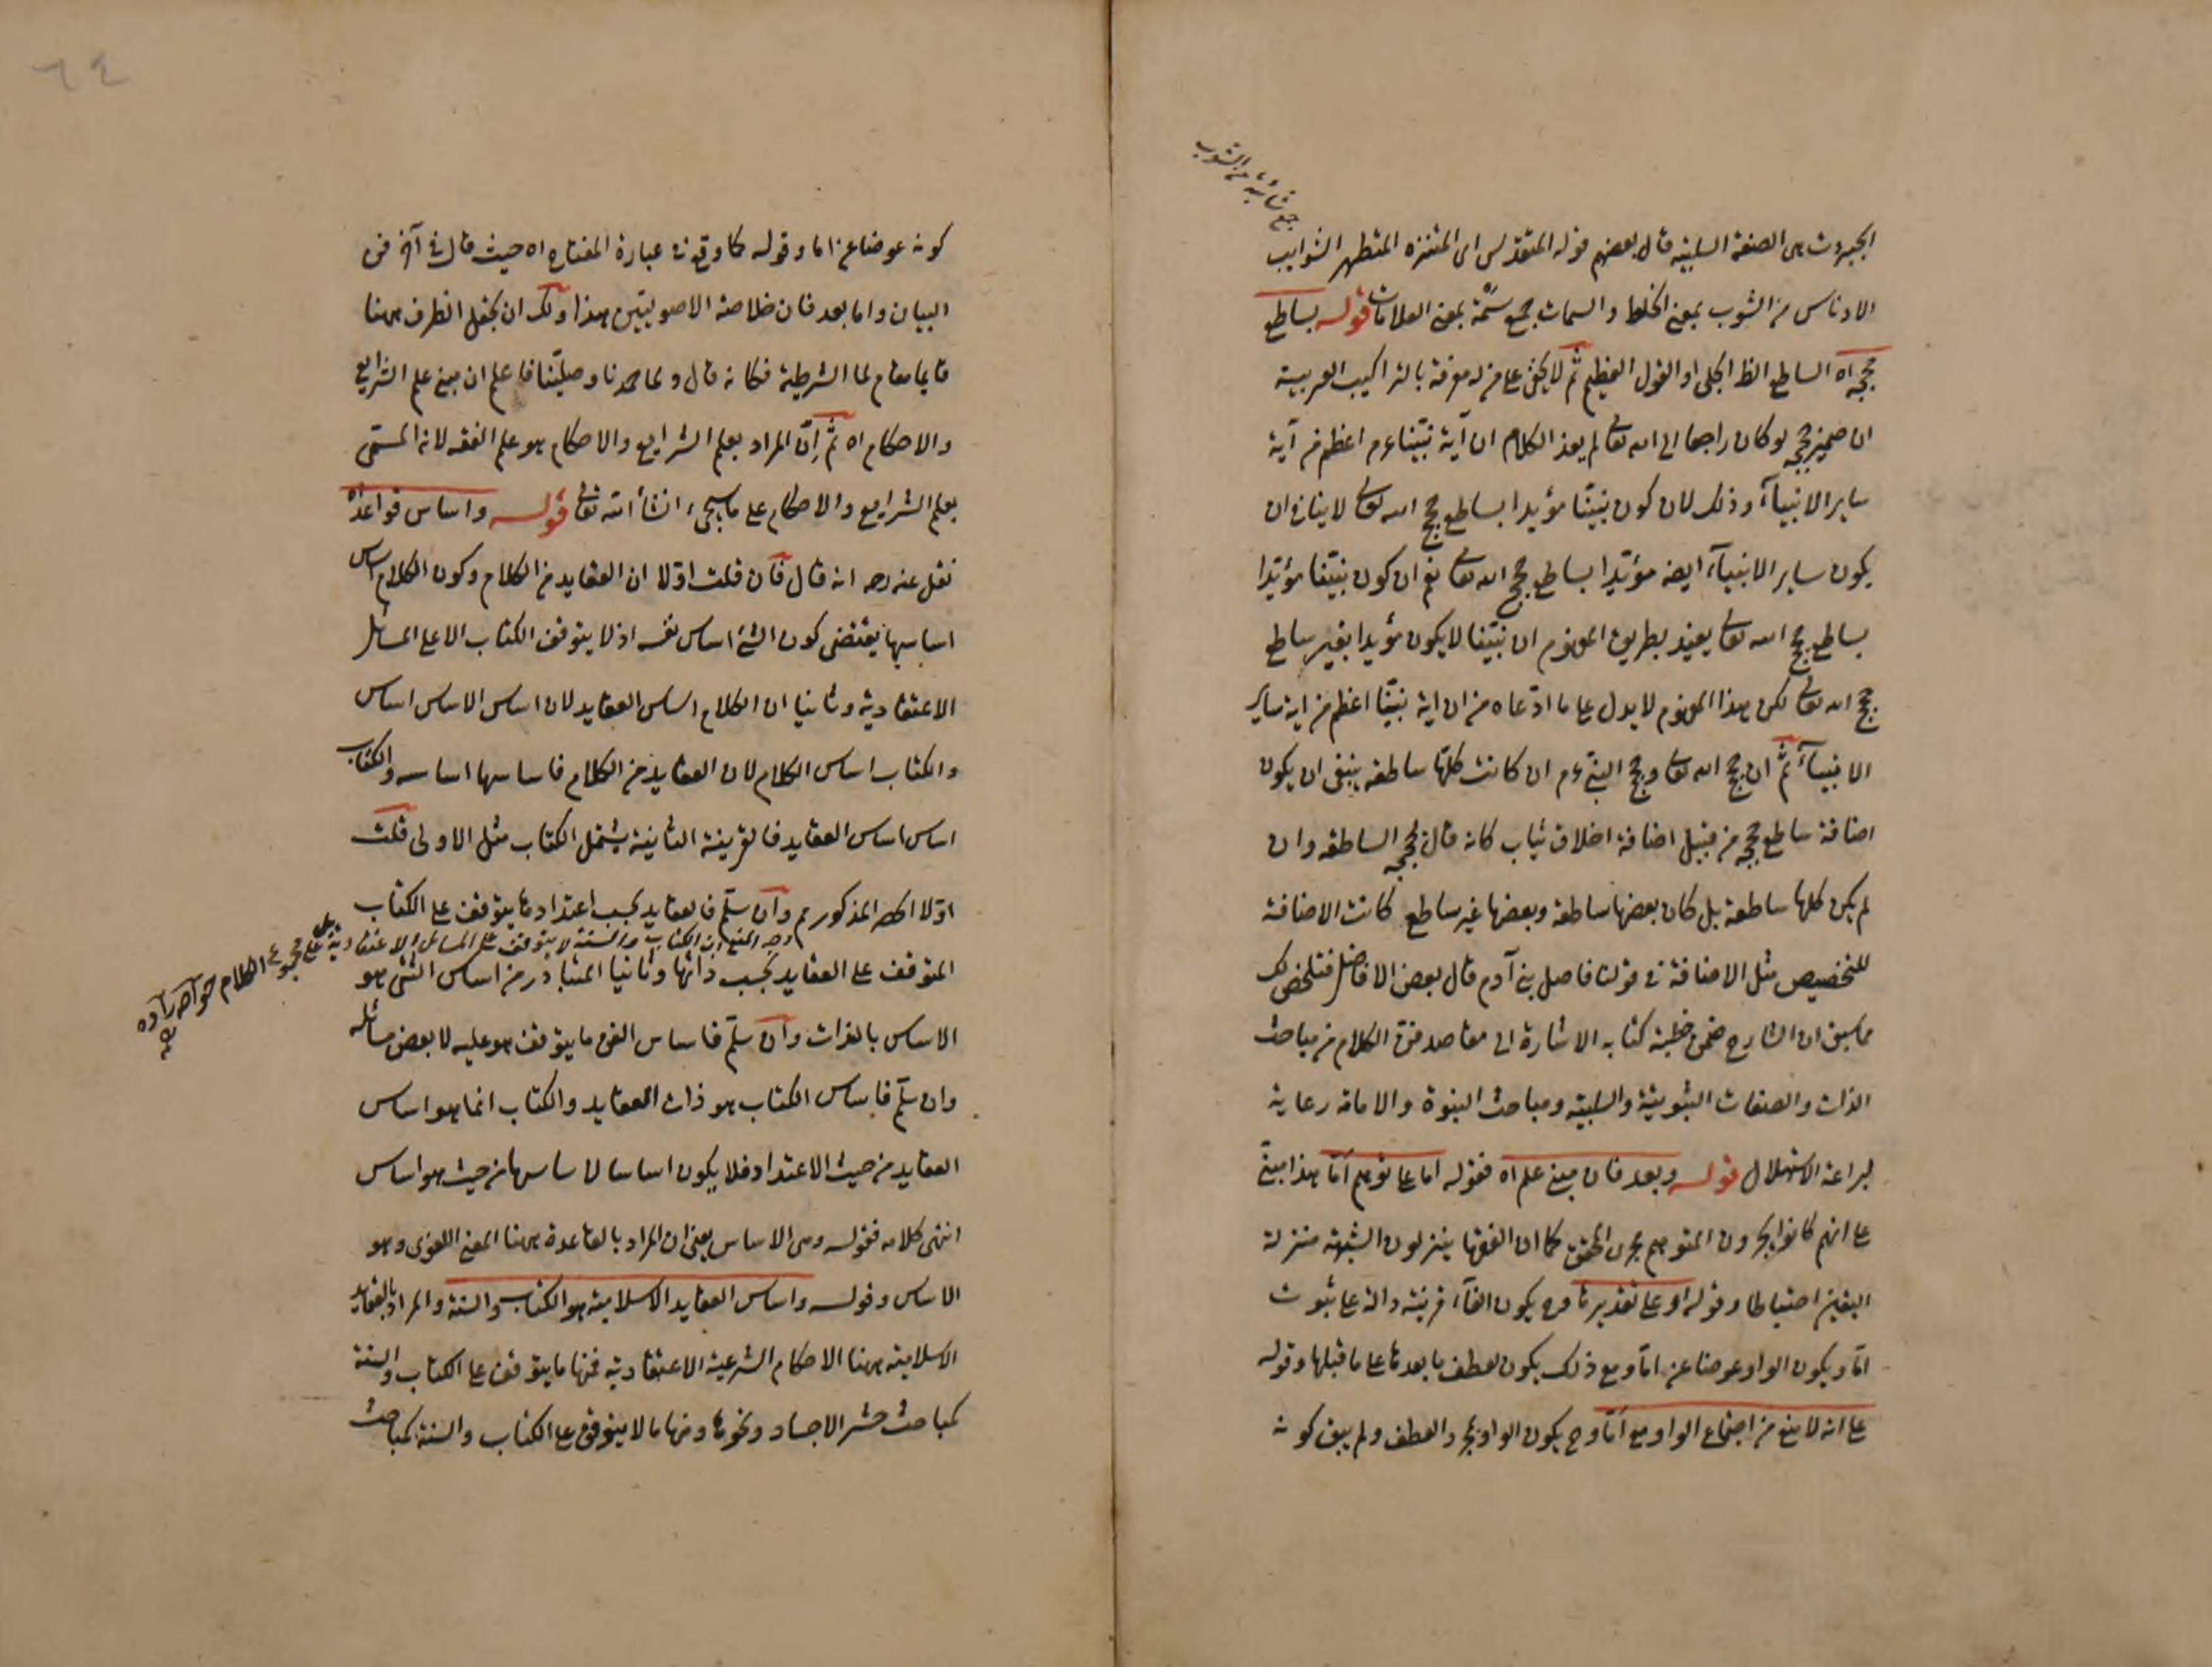 جمع شائبة من الشوب
الجبروت هى الصفة السلبية قال بعضهم قوله المتقدس اى المتنزه المتطهر الشوايب
الادناس من الشوب بمعنى الخلط والسمات جمع سمة بمعنى العلامات قوله بساطع
حججه اه الساطع الظ الجلى او القول العظيم ثم لا يخفى على من له معرفة بالتراكيب العربية
ان ضمير حججه لو كان راجعا الى الله تعالى لم يفد الكلام ان آية نبينا عم اعظم من آية
ساير الانبياء وذلك لان كون نبينا مؤيدا بساطع حجج الله تعالى لا ينافى ان
يكون ساير الانبياء ايضه مؤيدا بساطع حجج الله تعالى نعم ان كون نبينا مؤيدا
بساطع حجج الله تعالى يفيد بطريق المفهوم ان نبينا لا يكون مؤيدا بغير ساطع
حجج الله تعالى لكن هذا المفهوم لا يدل على ما ادعاه من ان اية نبينا اعظم من اية ساير
الانبياء ثم ان حجج الله تعالى وحجج النبى عم ان كانت كلها ساطعة ينبغى ان يكون
اضافة ساطع حججه من قبيل اضافة اخلاق ثياب كانه قال بحججه الساطعة وان
لم يكن كلها ساطعة بل كان بعضها ساطعة وبعضها غير ساطع كانت الاضافة
للتخصيص مثل الاضافة فى قولنا فاضل بنى آدم قال بعض الافاضل فتلخص لك
مما سبق ان الشارح ضمن خطبة كتابه الاشارة الى مقاصد فن الكلام من مباحث
الذات والصفات الثبوتية والسلبية ومباحث النبوة والامامة رعاية
لبراعة الاستهلال قوله وبعد فان مبنى علم اه فقوله اما على توهم اما هذا مبنى
على انهم كانوا يجرون المتوهم مجرى المحقق كما ان الفقها ينزلون الشبهة منزلة
اليقين احتياطا وقوله او على تقديرها وح يكون الفاء قرينة دالة على ثبوت
اما ويكون الواو عوضا عن اما ومع ذلك يكون لعطف ما بعدها على ما قبلها وقوله
على انه لا منع من اجتماع الواو مع اما وح يكون الواو لمجرد العطف ولم يبق كونه
٦٤
كونه عوضا عن اما وقوله كما وقع فى عبارة المفتاح اه حيث قال فى آخر فن
البيان واما بعد فان خلاصة الاصوليين هذا ولك ان تجعل الظرف ههنا
قايما مقام لما الشرطية فكانه قال ولما حمدنا وصلينا فاعلم ان مبنى علم الشرايع
والاحكام اه ثم ان المراد بعلم الشرايع والاحكام هو علم الفقه لانه المسمى
بعلم الشرايع والاحكام على ما سيجىء انشأ الله تعالى قوله واساس قواعد اه
نقل عنه رحه انه قال فان قلت اولا ان العقايد من الكلام وكون الكلام اساس
اساسها يقتضى كون الشئ اساس نفسه اذ لا يتوقف الكتاب الا على المسائل
الاعتقادية وثانيا ان الكلام اساس العقايد لان اساس الاساس اساس
والكتاب اساس الكلام لان العقايد من الكلام فاساسها اساسه والكتاب
اساس اساس العقايد فالقرينة الثانية يشمل الكتاب مثل الاولى قلت
اولا الحصر المذكور مم وان سلم فالعقايد بحسب اعتدادها يتوقف على الكتاب
وجه المنع ان الكتاب والسنة لا يتوقف على المسائل الاعتقادية على مجموع الكلام خواجه زاده
المتوقف على العقايد بحسب ذاتها وثانيا المتبادر من اساس الشئ هو
الاساس بالذات وان سلم فاساس الفن ما يتوقف هو عليه لا بعض مسائله
وان سلم فاساس الكتاب هو ذات العقايد والكتاب انما هو اساس
العقايد من حيث الاعتداد فلا يكون اساسا لاساسها من حيث هو اساس
انتهى كلامه فقوله وهى الاساس يعنى ان المراد بالقاعدة ههنا المعنى اللغوى وهو
الاساس وقوله واساس العقايد الاسلامية هو الكتاب والسنة والمراد بالعقايد
الاسلامية ههنا الاحكام الشرعية الاعتقادية فمنها ما يتوقف على الكتاب والسنة
كمباحث حشر الاجساد ونحوها ومنها ما لا يتوقف على الكتاب والسنة كمباحث